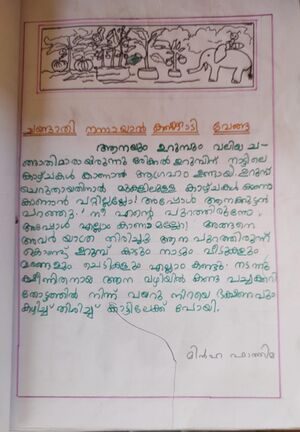 ചങ്ങാതി നന്നായാൽ കണ്ണാടി വേണ്ട
ആനയും ഉറുമ്പും വലിയ ച-
ങ്ങാതിമാരായിരുന്നു ഒരിക്കൽ ഉറുമ്പിന് നാട്ടിലെ
കാഴ്ചകൾ കാണാൻ ആഗ്രഹം ഉണ്ടായി. ഉറുമ്പ്
ചെറുതായതിനാൽ മുകളിലുള്ള കാഴ്ചകൾ ഒന്നും
കാണാൻ പറ്റില്ലല്ലോ! അപ്പോൾ ആനക്കുട്ടൻ
പറഞ്ഞു. നീ എൻ്റെ പുറത്തിരുന്നോ,
അപ്പോൾ എല്ലാം കാണാമല്ലോ! അങ്ങനെ
അവർ യാത്ര തിരിച്ചു ആന പുറത്തിരുന്ന്
കൊണ്ട് ഉറുമ്പ് കാടും നാടും വീടുകളും
മരങ്ങളും ചെടികളും എല്ലാം കണ്ടു. നടന്നു
ക്ഷീണിതനായ ആന വഴിയിൽ കണ്ട പച്ചക്കറി
തോട്ടത്തിൽ നിന്ന് വയറു നിറയെ ഭക്ഷണവും
കഴിച്ച് തിരിച്ച് കാട്ടിലേക്ക് പോയി.
മിൻഹ ഫാത്തിമ